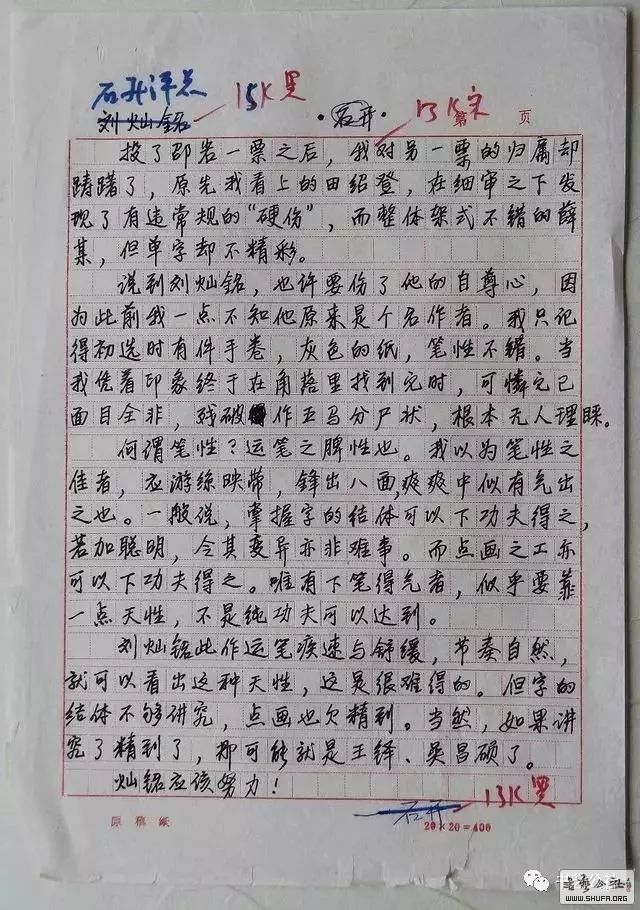 石开评点
15K黑
刘灿铭
·石开·
13K宋
第 页
投了邵岩一票之后，我对另一票的归属却
踌躇了，原先我看上的田绍登，在细审之下发
现了有违常规的“硬伤”，而整体架式不错的薛
某，但单字却不精彩。
说到刘灿铭，也许要伤了他的自尊心，因
为此前我一点不知他原来是个名作者。我只记
得初选时有件手卷，灰色的纸，笔性不错。当
我凭着印象终于在角落里找到它时，可憐它已
面目全非，残破作五马分尸状，根本无人理睬。
何谓笔性？运笔之脾性也。我以为笔性之
佳者，应游丝映带，锋出八面，爽爽中似有气出
之也。一般说，掌握字的结体可以下功夫得之，
若加聪明，令其变异亦非难事。而点画之工亦
可以下功夫得之。唯有下笔得气者，似乎要靠
一点天性，不是纯功夫可以达到。
刘灿铭此作运笔疾速与舒缓，节奏自然，
就可以看出这种天性，这是很难得的。但字的
结体不够讲究，点画也欠精到。当然，如果讲
究了精到了，那可能就是王铎、吴昌硕了。
灿铭应该努力！
石开
13K黑
原稿紙
20×20=400
WWW.SHUFA.ORG